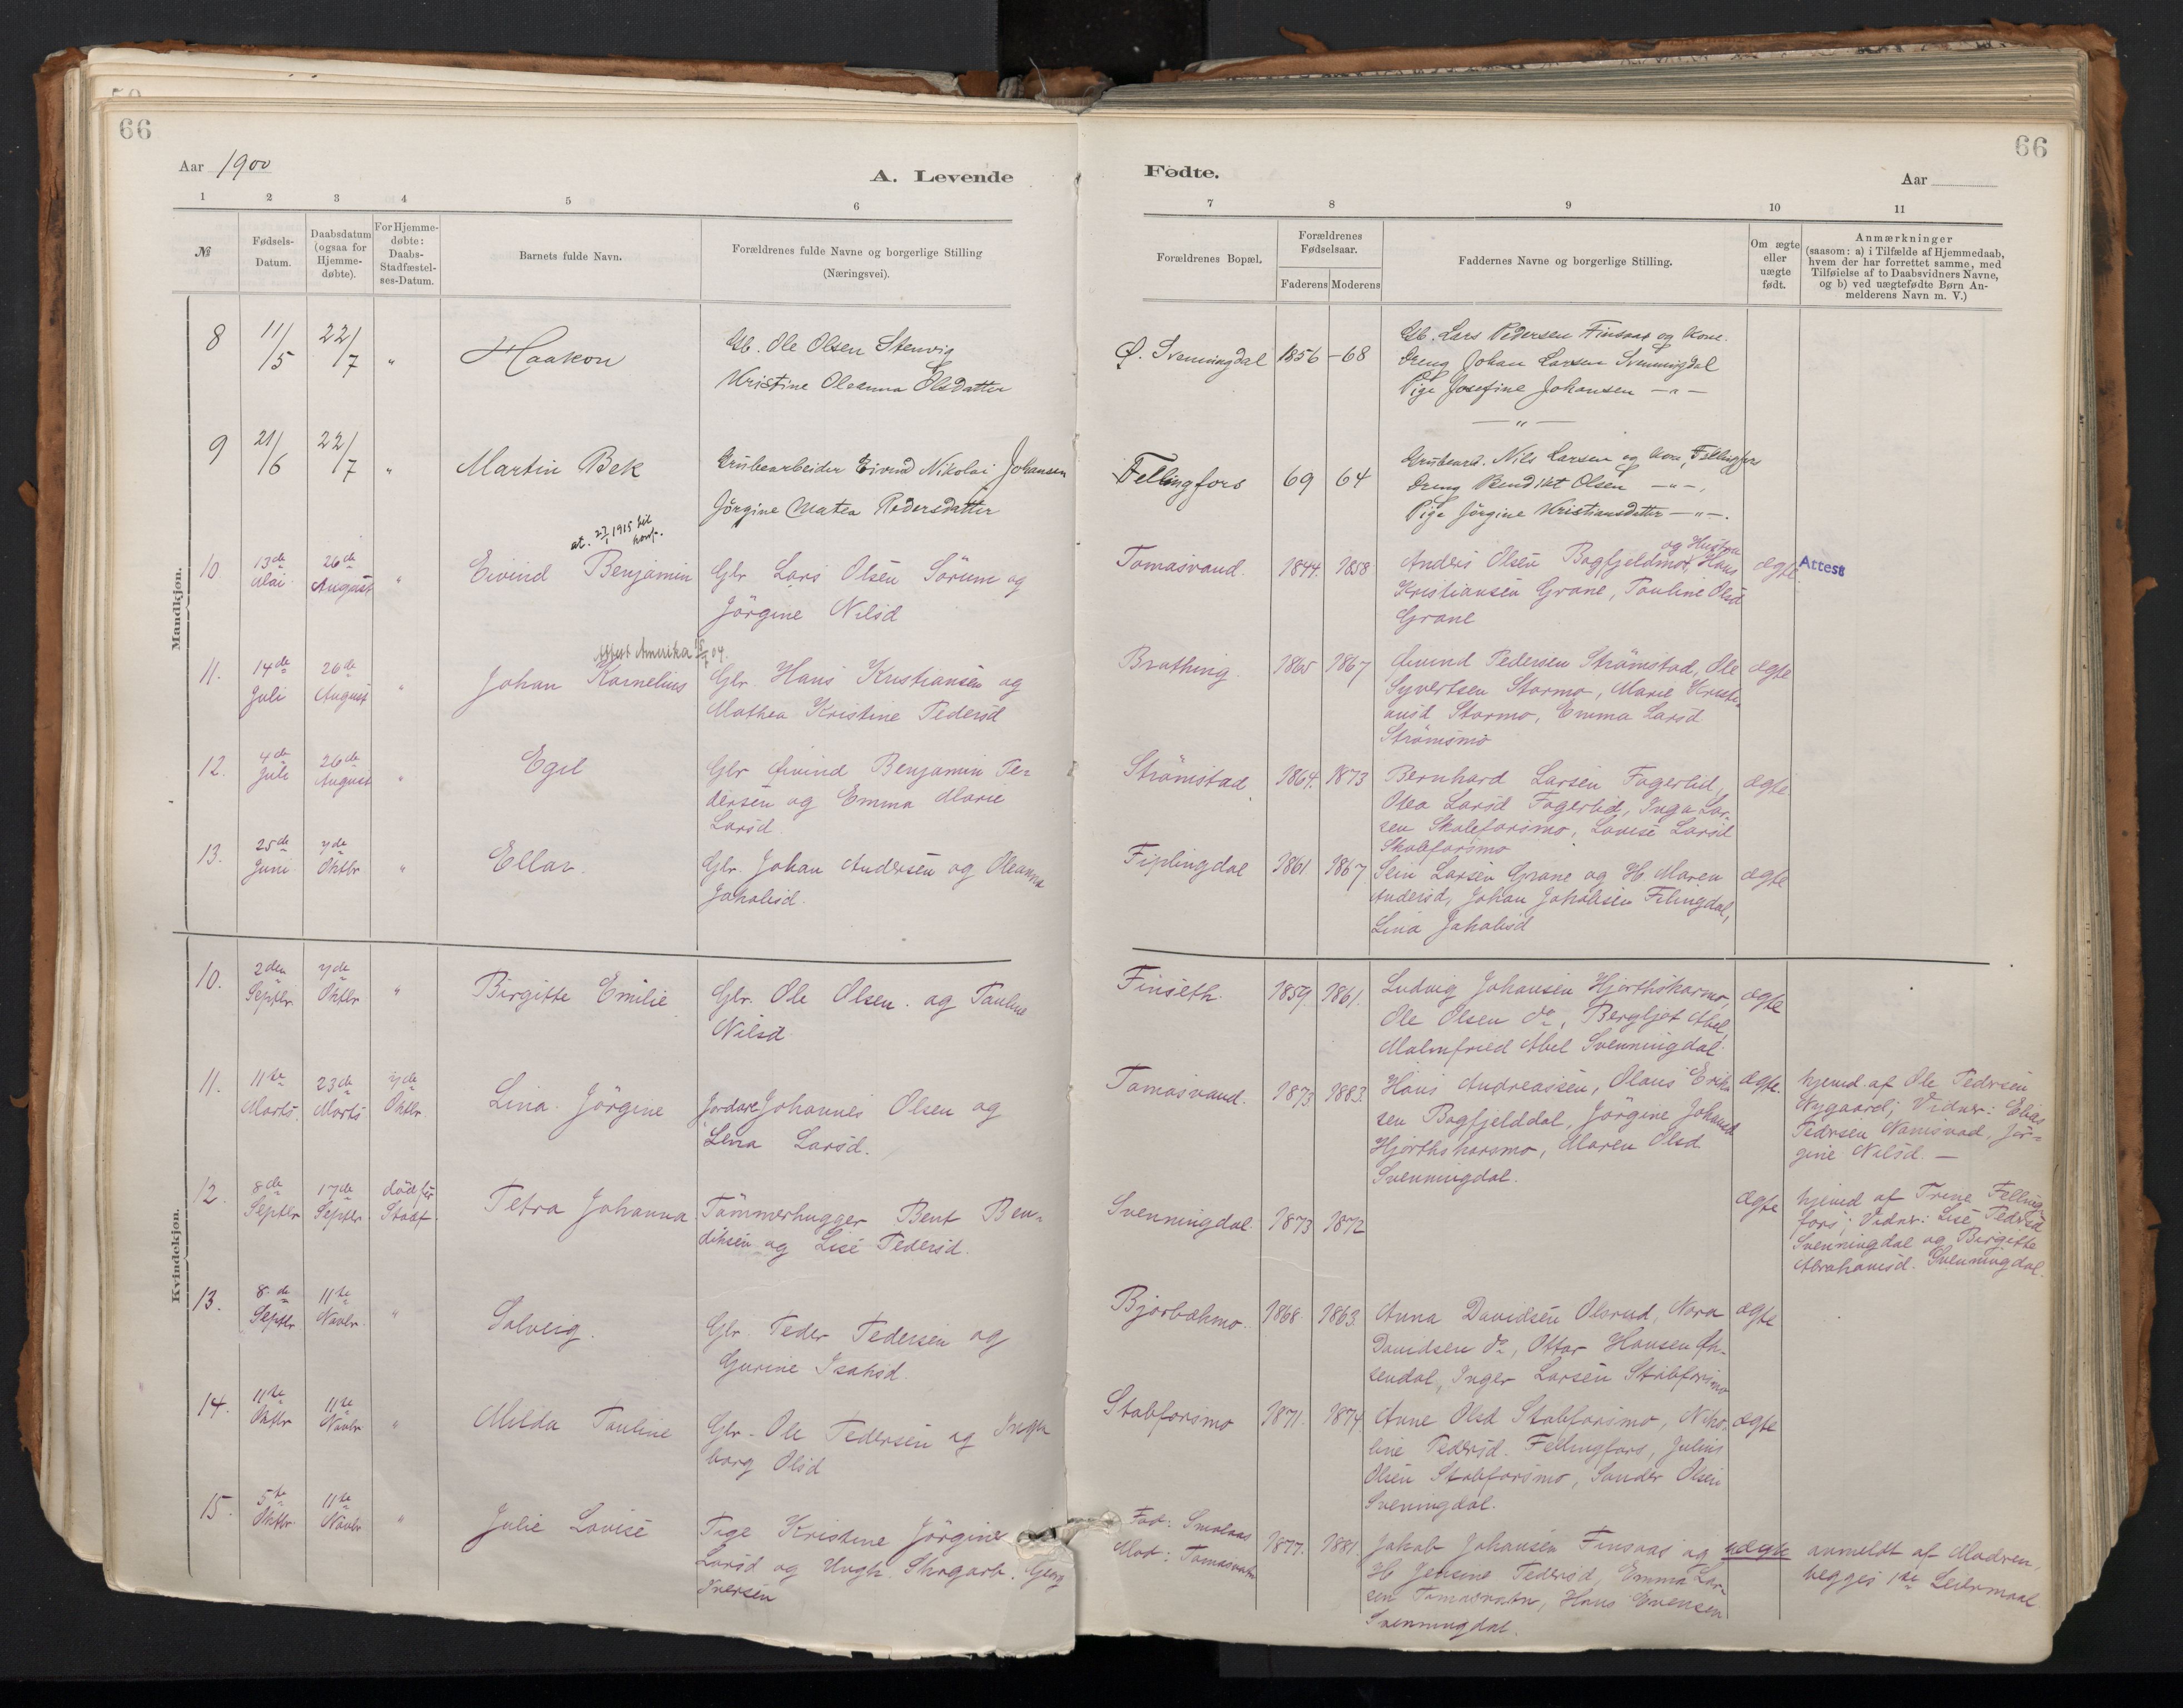 66
66
Aar 1900
A. Levende
Fødte.
Aar
1 2 3 4 5 6
7 8 9 10 11
№
Fødsels-
Datum.
Daabsdatum
(ogsaa for
Hjemme-
døbte).
For Hjemme-
døbte:
Daabs-
Stadfæstel-
ses-Datum.
Barnets fulde Navn.
Forældrenes fulde Navne og borgerlige Stilling
(Næringsvei).
Forældrenes Bopæl.
Forældrenes
Fødselsaar.
Faderens Moderens
Faddernes Navne og borgerlige Stilling.
Om ægte
eller
uægte
født.
Anmærkninger
(saasom: a) i Tilfælde af Hjemmedaab,
hvem der har forrettet samme, med
Tilføielse af to Daabsvidners Navne,
og b) ved uægtefødte Børn An-
melderens Navn m. V.)
Mandkjøn.
8 11/5 22/7 " Haakon
Gb. Ole Olsen Stenvig
Kristine Oleanna Olsdatter
Ø. Svenningdal 1856 -68
Gb. Lars Pedersen Finsaas og Kone.
Dreng Johan Larsen Svenningdal
Pige Josefine Johansen -"-
-"-
9 21/6 22/7 " Martin Bek
Grubearbeider Eivind Nikolai Johansen
Jörgine Matea Pedersdatter
Fellingfors 69 64
Grubearb. Nils Larsen og Kone, Fellingfors
Dreng Bendikt Olsen -"-,
Pige Jörgine Kristiansdatter -"-.
at. 27/1 1915 til konf.
10 13de Mai 26de August " Eivind Benjamin
Glr. Lars Olsen Sörum og
Jörgine Nilsd
Tomasvand. 1844. 1858
og Hustru
Anders Olsen Bogfjeldmo, Hans
Kristiansen Grane, Pauline Olsd
Grane
ægte. Attest
Attest Amerika 04.
11. 14de Juli 26de August " Johan Kornelius
Glr. Hans Kristiansen og
Mathea Kristine Pedersd
Brathing. 1865 1867
Eivind Pedersen Strömstad, Ole
Syvertsen Stormo, Marie Kristi-
ansd Stormo, Emma Larsd
Strömsmo
ægte
12. 4de Juli 26de August " Egil
Glr Eivind Benjamin Pe-
dersen og Emma Marie
Larsd.
Strömstad 1864. 1873
Bernhard Larsen Fagerlid,
Olea Larsd Fagerlid, Inga Lar-
sen Stabforsmo, Lovise Larsd
Stabforsmo
ægte
13. 25de Juni 7de Oktbr " Ellar.
Glr. Johan Andersen og Oleanna
Jakobsd.
Fiplingdal 1861 1867
Sein Larsen Grane og H. Maren
Andersd, Johan Jakobsen Filingdal,
Lina Jakobsd
ægte
Kvindekjøn.
10. 2den Septbr 7de Oktbr " Birgitte Emilie
Glr. Ole Olsen og Pauline
Nilsd
Finseth. 1859. 1861.
Ludvig Johansen Hjorthskarmo,
Ole Olsen do, Bergljot Abel,
Malmfried Abel Svenningdal.
ægte
11. 11te Marts. 23de Marts 7de Oktbr Lina Jörgine
Jordarb Johannes Olsen og
Lina Larsd.
Tomasvand. 1873. 1883.
Hans Andreassen, Olaus Erik-
sen Bogfjelddal, Jörgine Johansd
Hjorthskarmo, Maren Olsd
Svenningdal.
ægte. hjemd. af Ole Pedersen
Nygaard; Vidner: Elias
Pedersen Namsvad, Jör-
gine Nilsd. -
12. 8de Septbr 17de Septbr. död før Stadf. Petra Johanna
Tömmerhugger Bent Ben-
diksen og Lise Pedersd.
Svenningdal. 1873 1872
ægte hjemd af Trine Felling-
fors; Vidner: Lise Pedersd
Svenningdal og Birgitte
Abrahamsd. Svenningdal.
13. 8de Septbr 11te Novbr. " Solveig.
Glr. Peder Pedersen og
Gurine Isaksd.
Bjorbækmo. 1868. 1863.
Anna Davidsen Olsrud, Nora
Davidsen do, Ottar Hansen Øk-
sendal, Inger Larsen Stabforsmo
ægte
14. 11te Oktbr 11te Novbr " Milda Pauline
Glr. Ole Pedersen og Inge-
borg Olsd
Stabforsmo 1871. 1874.
Anne Olsd Stabforsmo, Niko-
line Pedersd. Fellingfors, Julius
Olsen Stabforsmo, Sander Olsen
Svenningdal.
ægte
15. 5te Oktbr. 11te Novbr " Julie Lovise
Pige Kristine Jörgine
Larsd og Ungk. Skogarb. Georg
Iversen
Fad: Smalaas
Mod: Tomasvatn
1877. 1881.
Jakob Johansen Finsaas og
H. Jensine Pedersd, Emma Lar-
sen Tomasvatn, Hans Evensen
Svenningdal.
uægte anmeldt af Modren,
begges 1ste Leiermaal.